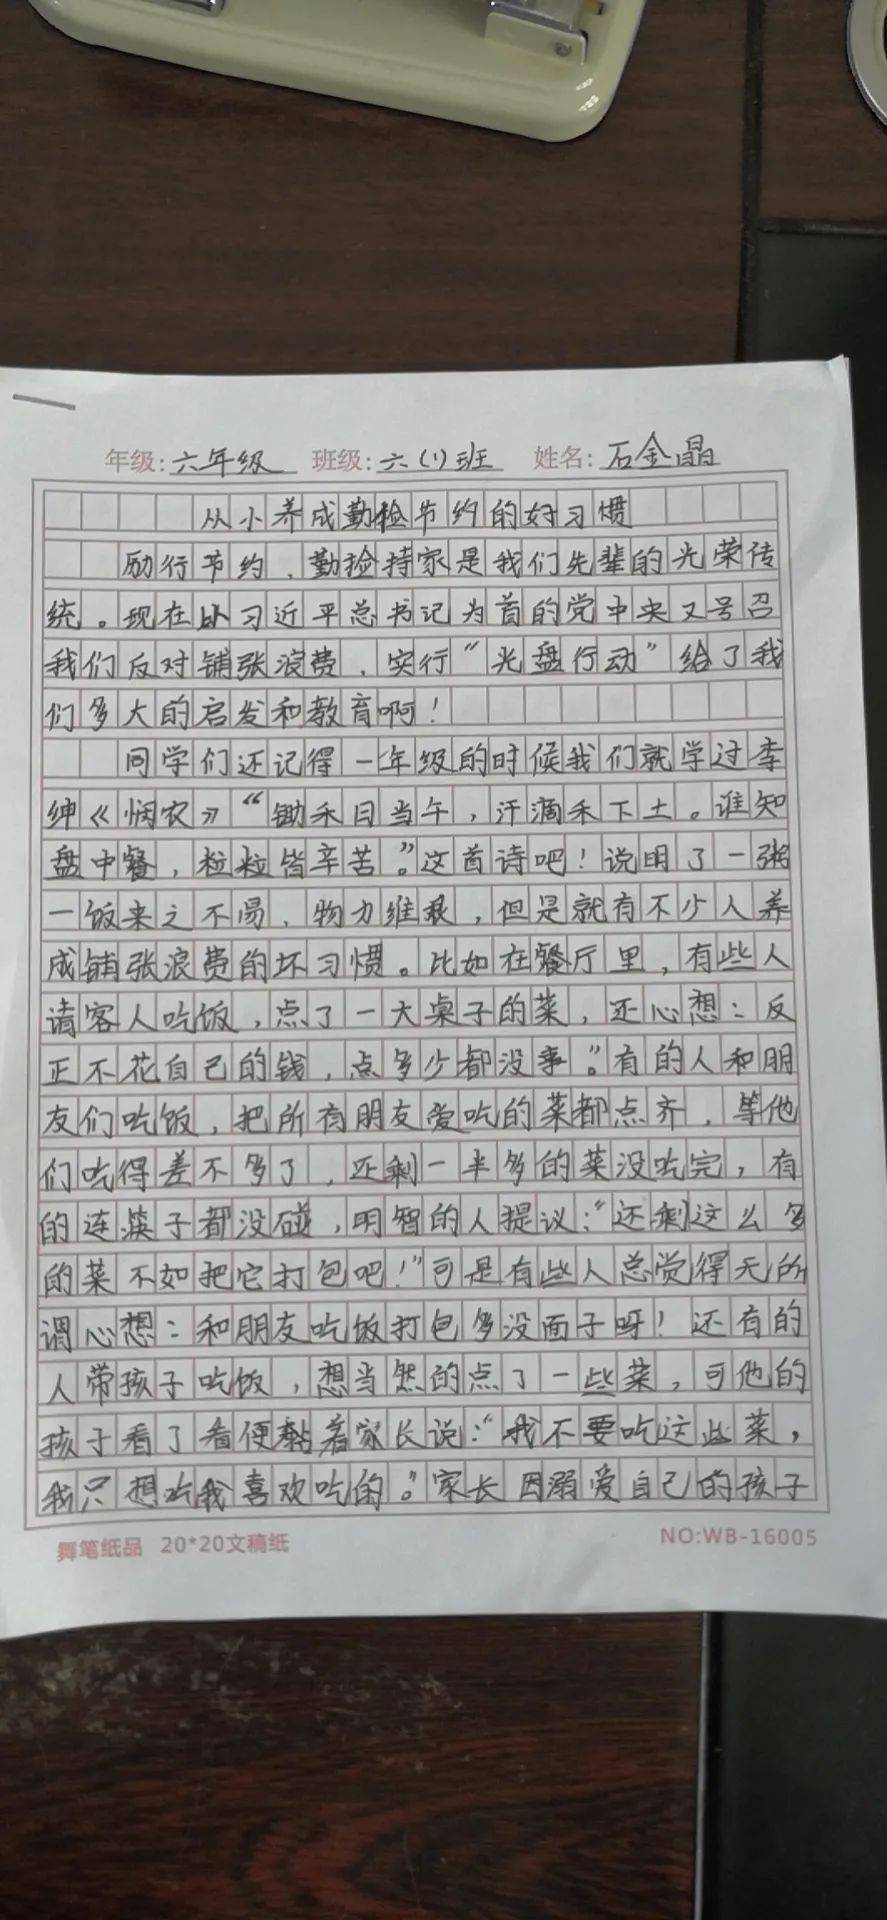 年级:六年级 班级:六(1)班 姓名:石金晶
从小养成勤俭节约的好习惯
励行节约、勤捡持家是我们先辈的光荣传
统。现在以习近平总书记为首的党中央又号召
我们反对铺张浪费、实行“光盘行动”给了我
们多大的启发和教育啊!
同学们还记得一年级的时候我们就学过李
绅《悯农》“锄禾日当午,汗滴禾下土。谁知
盘中餐,粒粒皆辛苦”。这首诗吧!说明了一粥
一饭来之不易、物力维艰,但是就有不少人养
成铺张浪费的坏习惯。比如在餐厅里,有些人
请客人吃饭,点了一大桌子的菜,还心想:反
正不花自己的钱,点多少都没事”。有的人和朋
友们吃饭,把所有朋友爱吃的菜都点齐,等他
们吃得差不多了,还剩一半多的菜没吃完,有
的连筷子都没碰,明智的人提议:“还剩这么多
的菜不如把它打包吧!”可是有些人总觉得无所
谓心想:和朋友吃饭打包多没面子呀!还有的
人带孩子吃饭,想当然的点了一些菜,可他的
孩子看了看便黏着家长说:“我不要吃这些菜,
我只想吃我喜欢吃的”。家长因溺爱自己的孩子
舞笔纸品 20*20文稿纸 NO:WB-16005